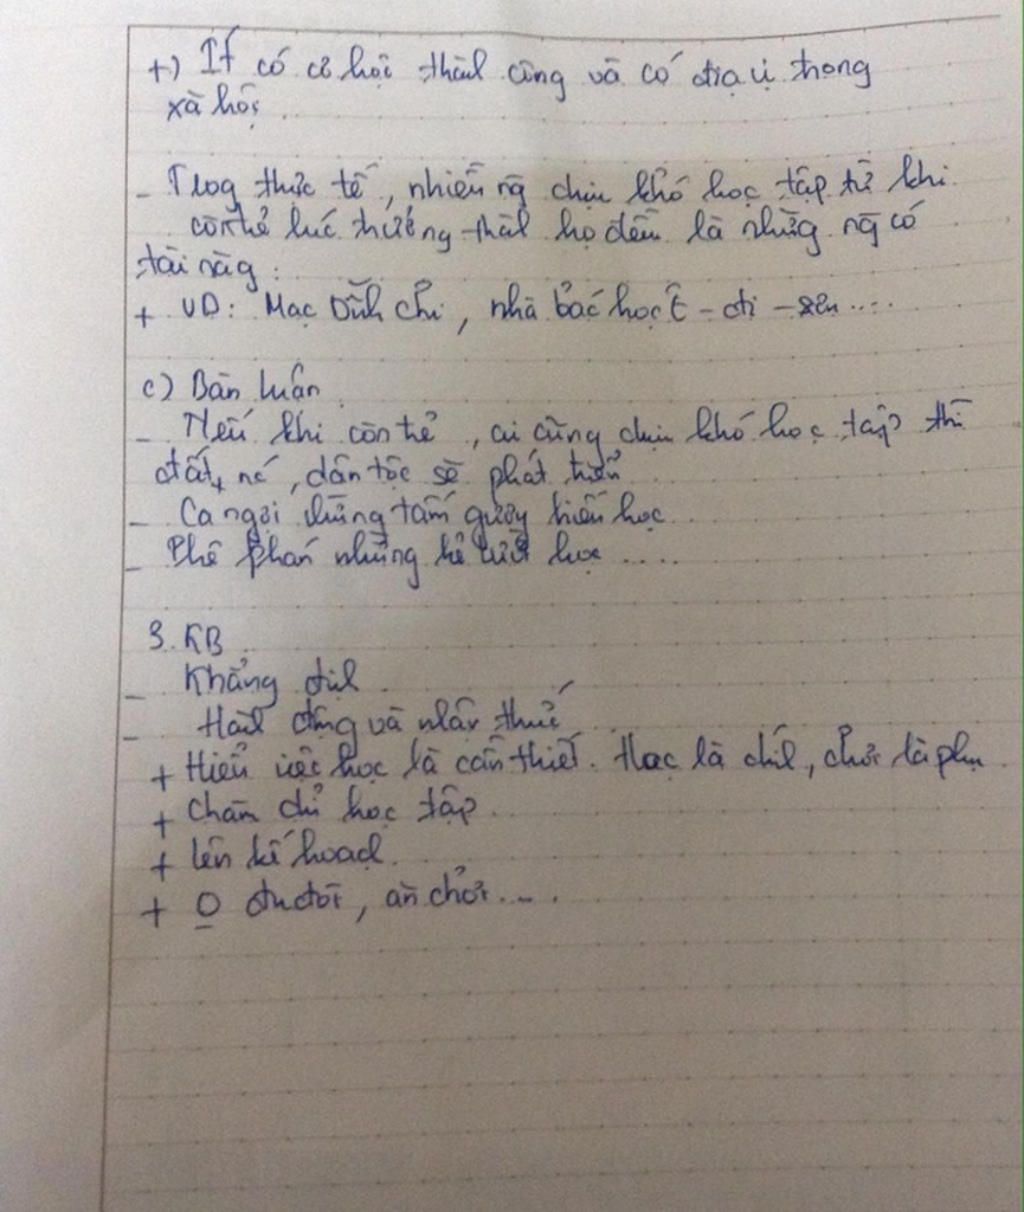 +) Ít có cơ hội thàhh công và có địa vị trong
xã hội.
- Trog thực tế, nhiều ng chịu khó học tập từ khi
còn trẻ lúc trưởng thàhh họ đều là những ng có
tài năg:
+ VD: Mạc Đĩnh Chi, nhà bác học Ê - đi - xơn ....
c) Bàn luận
- Nếu khi còn trẻ, ai cũng chịu khó học tập thì
đất nc, dân tộc sẽ phát triển
- Ca ngợi những tấm gương hiếu học
- Phê phán những kẻ lười học .....
3. KB
- Khẳng địhh
- Hàhh động và nhận thức
+ Hiểu việc học là cần thiết. Học là chíhh, chơi là phụ
+ Chăm chỉ học tập.
+ Lên kế hoạch.
+ O đua đòi, ăn chơi....